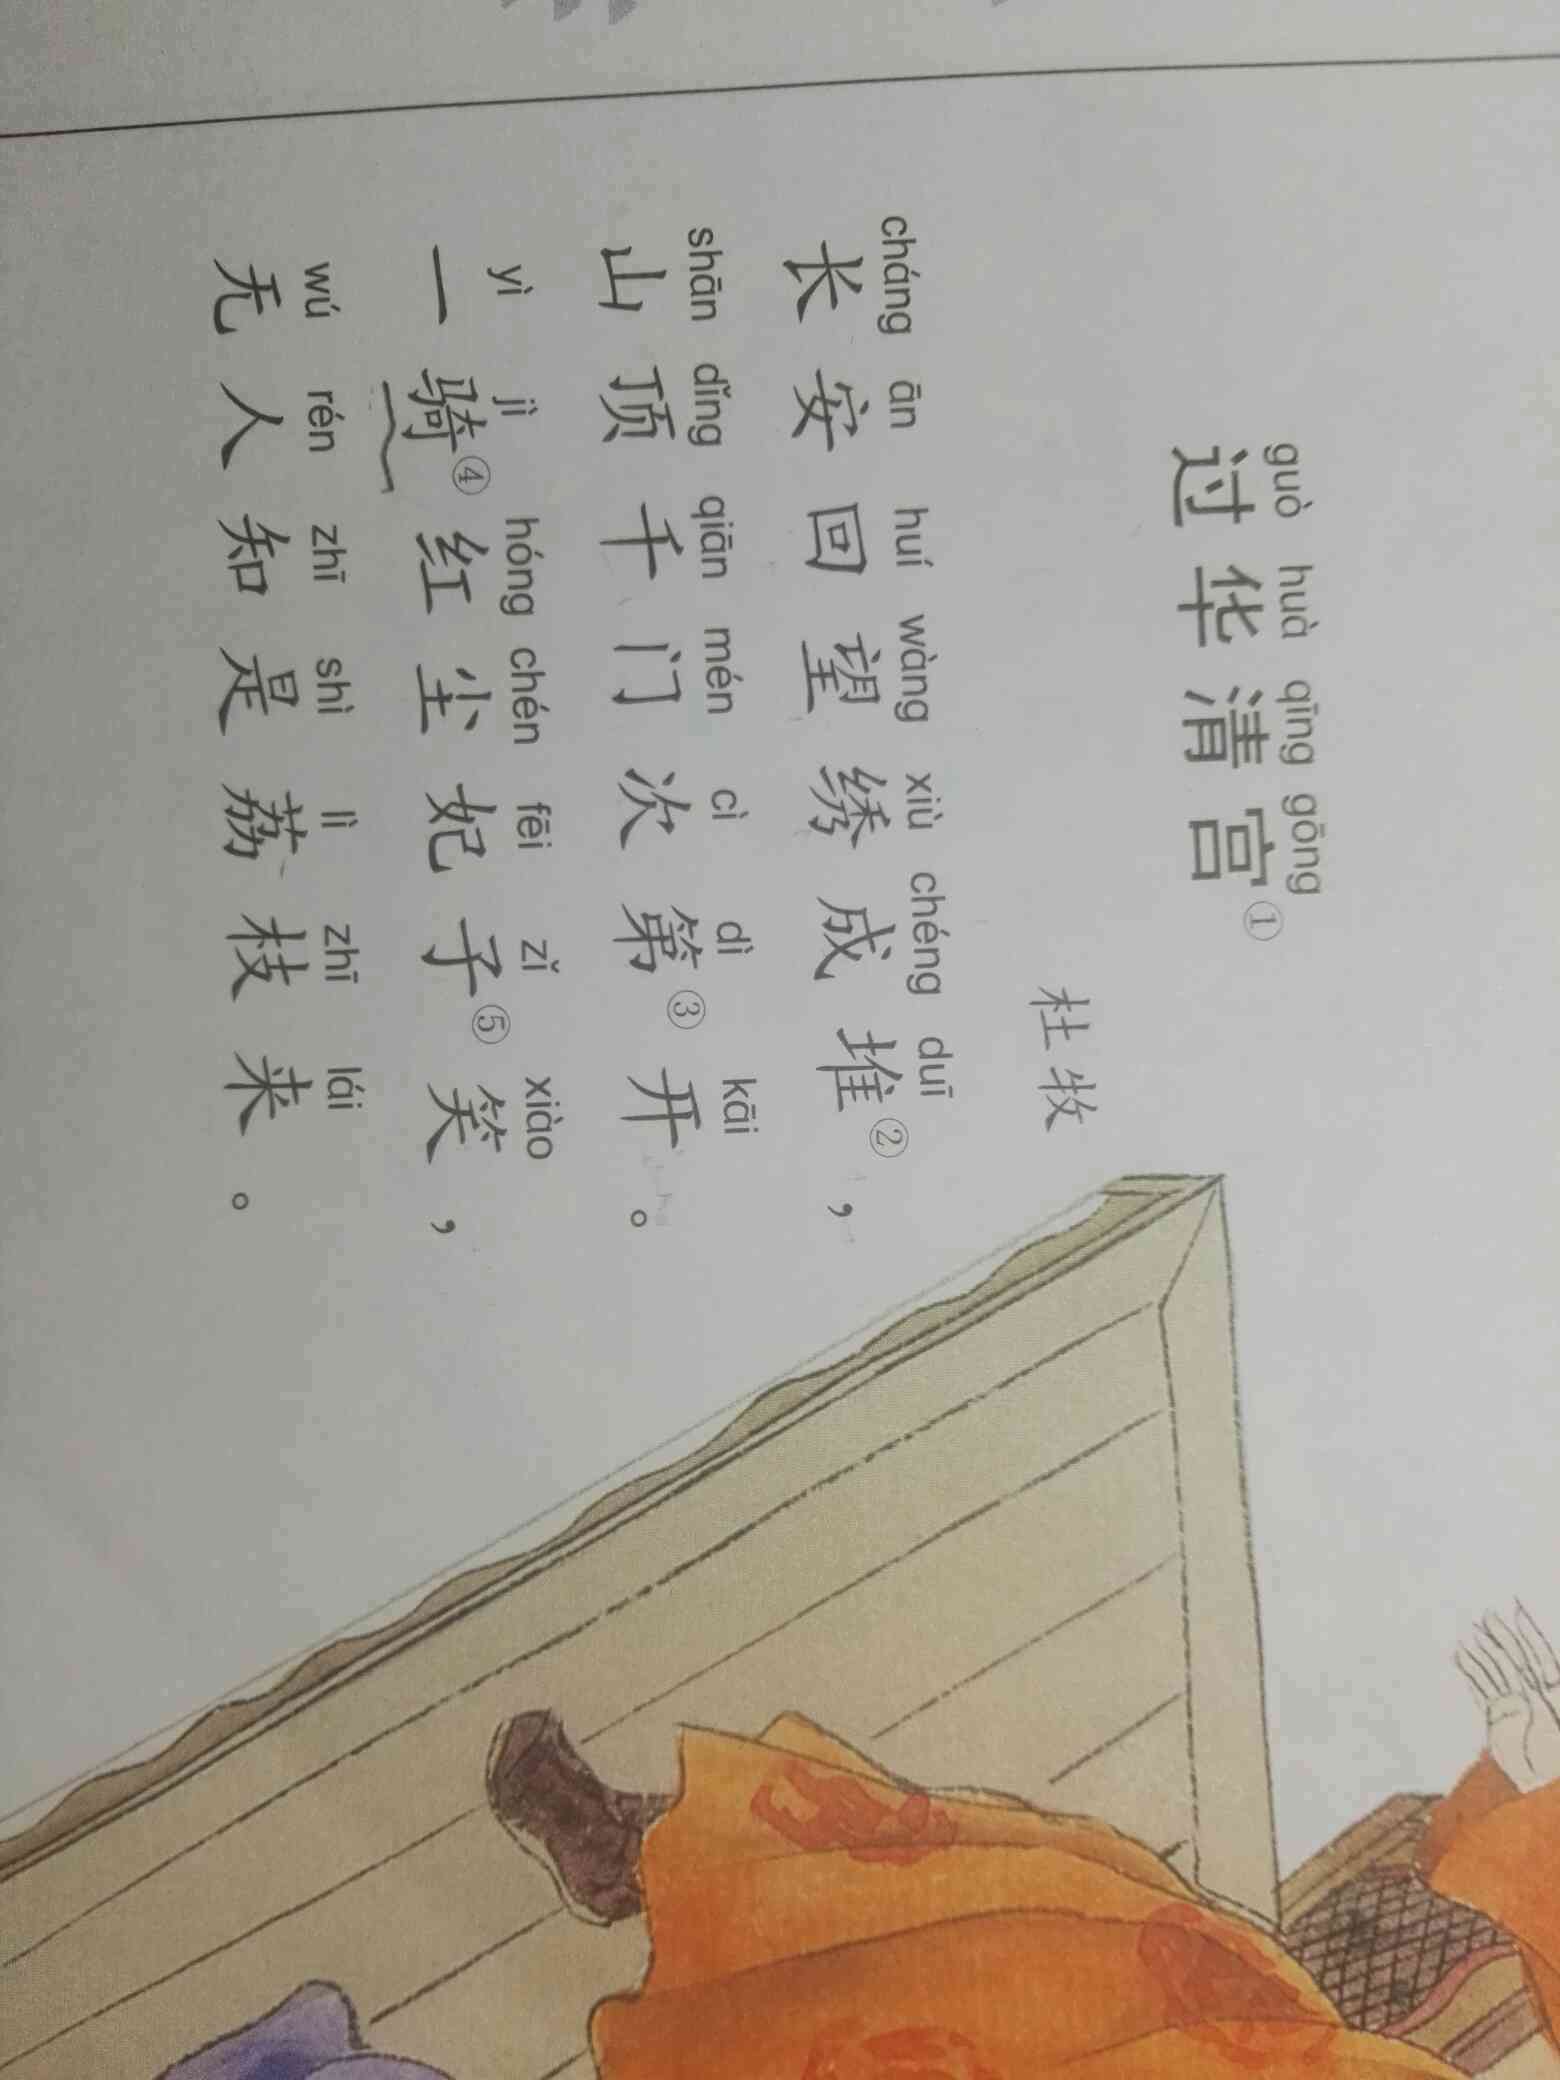 guò huà qīng gōng
过华清宫①
杜牧
cháng ān huí wàng xiù chéng duī
长安回望绣成堆②，
shān dǐng qiān mén cì dì kāi
山顶千门次第③开。
yì jì hóng chén fēi zǐ xiào
一骑④红尘妃子⑤笑，
wú rén zhī shì lì zhī lái
无人知是荔枝来。